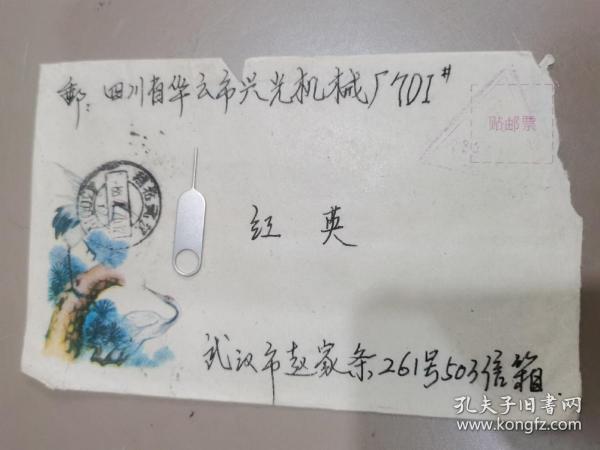 邮: 四川省华云市兴光机械厂701#
贴邮票
红 英
武汉市赵家条261号503信箱
孔夫子旧书网
www.kongfz.com